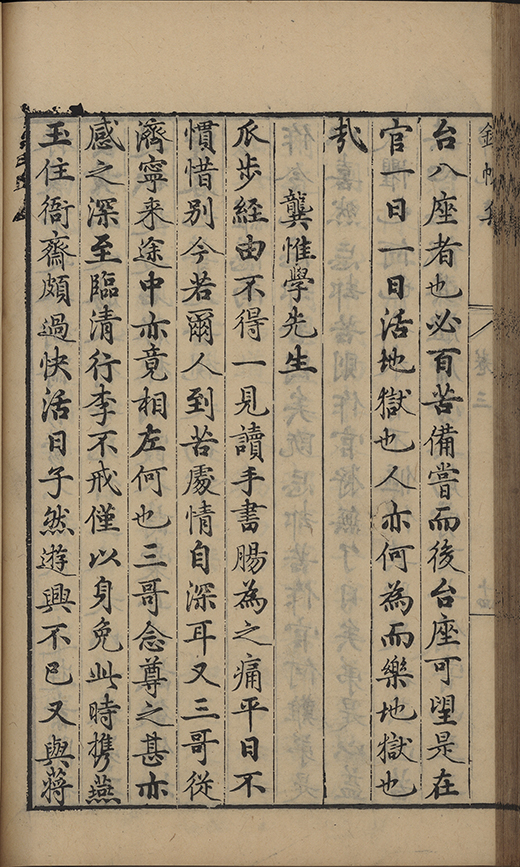 台八座者也必百苦備嘗而後台座可望是在
官一日一日活地獄也人亦何為而樂地獄也
哉
龔惟學先生
瓜步經由不得一見讀手書腸為之痛平日不
慣惜別今若爾人到苦處情自深耳又三哥從
濟寧来途中亦竟相左何也三哥念尊之甚亦
感之深至臨清行李不戒僅以身免此時携燕
玉住衙齋頗過快活日子然遊興不已又與蔣